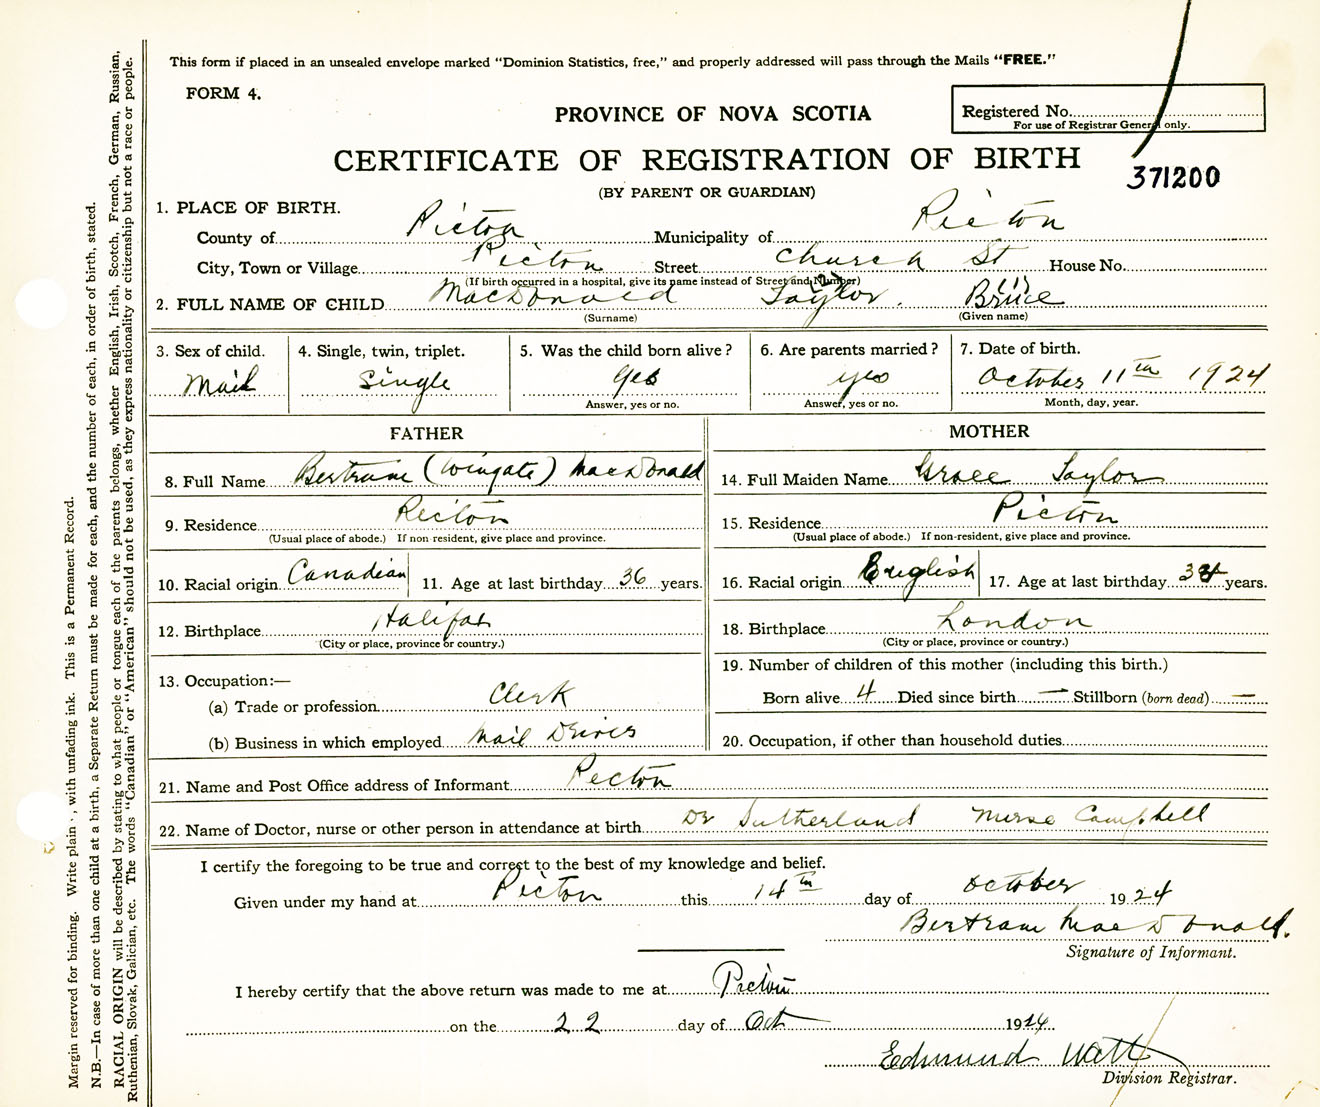 This form if placed in an unsealed envelope marked "Dominion Statistics, free," and properly addressed will pass through the Mails "FREE."
FORM 4.
PROVINCE OF NOVA SCOTIA
Registered No.
For use of Registrar General only.
CERTIFICATE OF REGISTRATION OF BIRTH
371200
(BY PARENT OR GUARDIAN)
1. PLACE OF BIRTH.
County of Pictou Municipality of Pictou
City, Town or Village Pictou Street Church St House No.
(If birth occurred in a hospital, give its name instead of Street and Number)
2. FULL NAME OF CHILD MacDonald Taylor. Bruce
(Surname) (Given name)
3. Sex of child. 4. Single, twin, triplet. 5. Was the child born alive? 6. Are parents married? 7. Date of birth.
Mail Single yes yes October 11th 1924
Answer, yes or no. Answer, yes or no. Month, day, year.
FATHER MOTHER
8. Full Name Bertram (Wingate) MacDonald 14. Full Maiden Name Grace Taylor
9. Residence Pictou 15. Residence Pictou
(Usual place of abode.) If non-resident, give place and province. (Usual place of abode.) If non-resident, give place and province.
10. Racial origin Canadian 11. Age at last birthday 36 years. 16. Racial origin English 17. Age at last birthday years.
12. Birthplace Halifax 18. Birthplace London
(City or place, province or country.) (City or place, province or country.)
13. Occupation:— 19. Number of children of this mother (including this birth.)
(a) Trade or profession Clerk Born alive 4 Died since birth — Stillborn (born dead) —
(b) Business in which employed Mail Driver 20. Occupation, if other than household duties
21. Name and Post Office address of Informant Pictou
22. Name of Doctor, nurse or other person in attendance at birth Dr Sutherland Nurse Campbell
I certify the foregoing to be true and correct to the best of my knowledge and belief.
Given under my hand at Pictou this 14th day of October 1924
Bertram MacDonald.
Signature of Informant.
I hereby certify that the above return was made to me at Pictou
on the 22 day of Oct 1924
Edmund Watt
Division Registrar.
Margin reserved for binding. Write plain , with unfading ink. This is a Permanent Record.
N.B.—In case of more than one child at a birth, a Separate Return must be made for each, and the number of each, in order of birth, stated.
RACIAL ORIGIN will be described by stating to what people or tongue each of the parents belongs, whether English, Irish, Scotch, French, German, Russian,
Ruthenian, Slovak, Galician, etc. The words "Canadian" or "American" should not be used, as they express nationality or citizenship but not a race or people.